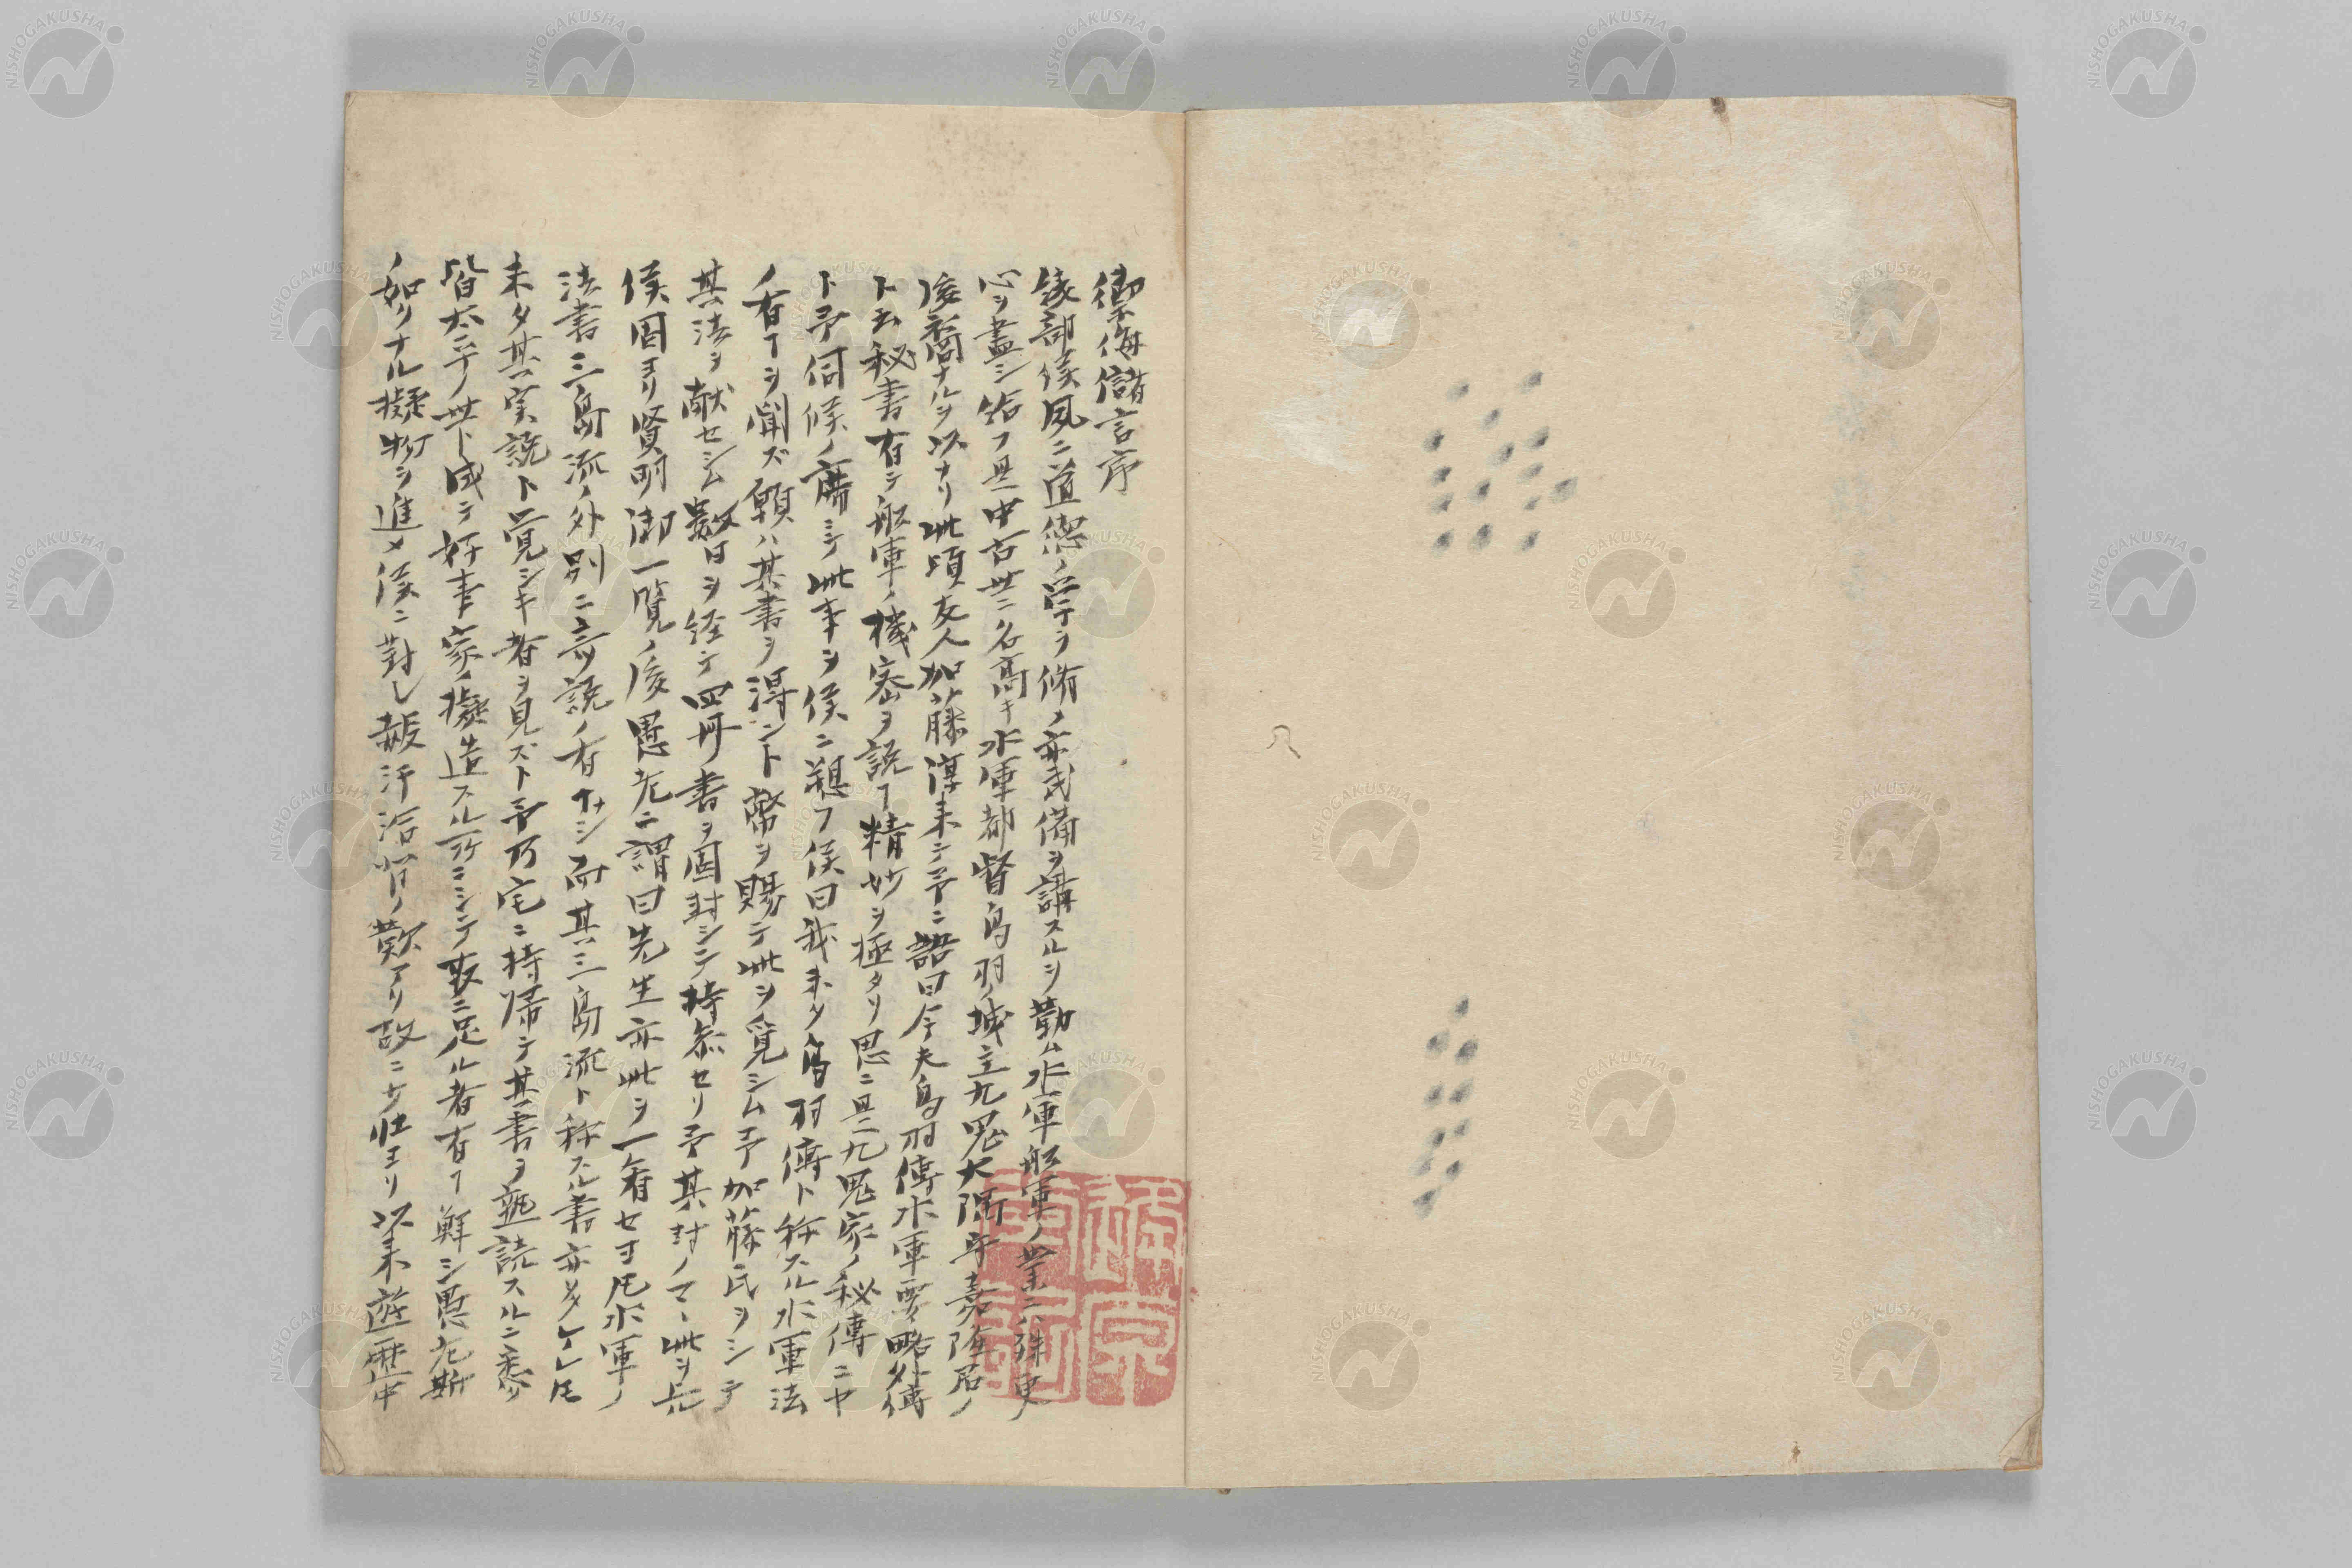 禦海儲言序
綾部侯夙ニ道徳ノ学ヲ脩メ亦武備ヲ講スルヲ勤ム水軍舩軍ノ業ニハ殊更
心ヲ盡シ給フ是中古世ニ名高キ水軍都督鳥羽ノ城主九鬼大隅守嘉隆君ノ
後裔ナルヲ以ナリ此頃友人加藤淳来テ予ニ語曰今夫鳥羽傳水軍要略外傳
ト云秘書有テ舩軍ノ機密ヲ説フ精妙ヲ極タリ思ニ是九鬼家ノ秘傳ニヤ
ト予伺候ノ席ニテ此事ヲ侯ニ趨フ侯曰我未タ鳥羽傳ト称スル水軍法
ノ有フヲ聞ズ願ハ其書ヲ得ント幣ヲ賜テ此ヲ覓シム予加藤氏ヲシテ
其法ヲ献セシム数日ヲ経テ四冊ノ書ヲ固封シテ持参セリ予其封ノマヽ此ヲ呈
侯固ヨリ賢明御一覧ノ後愚老ニ謂曰先生亦此ヲ一看セヨ凡水軍ノ
法書三島流ノ外別ニ説ノ有ナシ而其三島流ト称スル書亦多ケレ𪜈
未タ其実説ト覚シキ者ヲ見ズト予乃宅ニ持帰テ其書ヲ熟読スルニ悉ク
皆太平ノ世ト成テ好事家ノ擬造スル所ニシテ取ニ足ル者有フ鮮シ愚老斯
ノ如リナル擬物ヲ進メ侯ニ對し赧汗浴背ノ歎アリ故ニ少壮ヨリ以来遊歴中